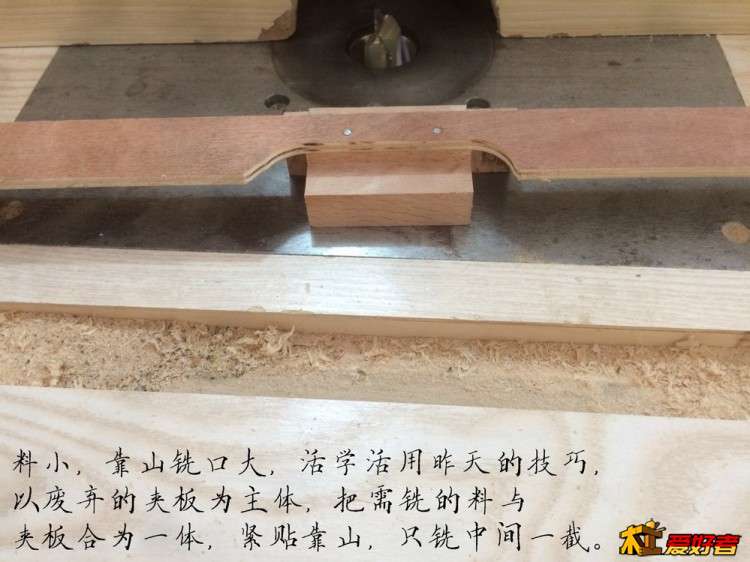 料小，靠山铣口大，活学活用昨天的技巧，
以废弃的夹板为主体，把需铣的料与
夹板合为一体，紧贴靠山，只铣中间一截。
木工爱好者